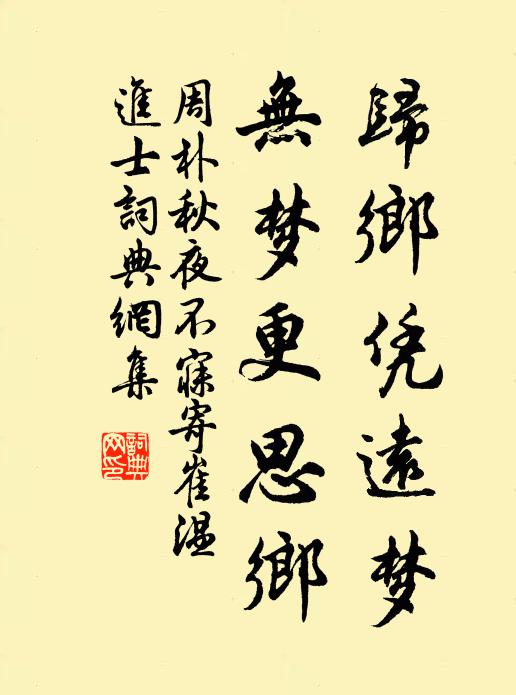 歸鄉凭遠梦
無梦更思鄉
周朴秋夜不寐寄崔温
進士詞典網集
詞典网印